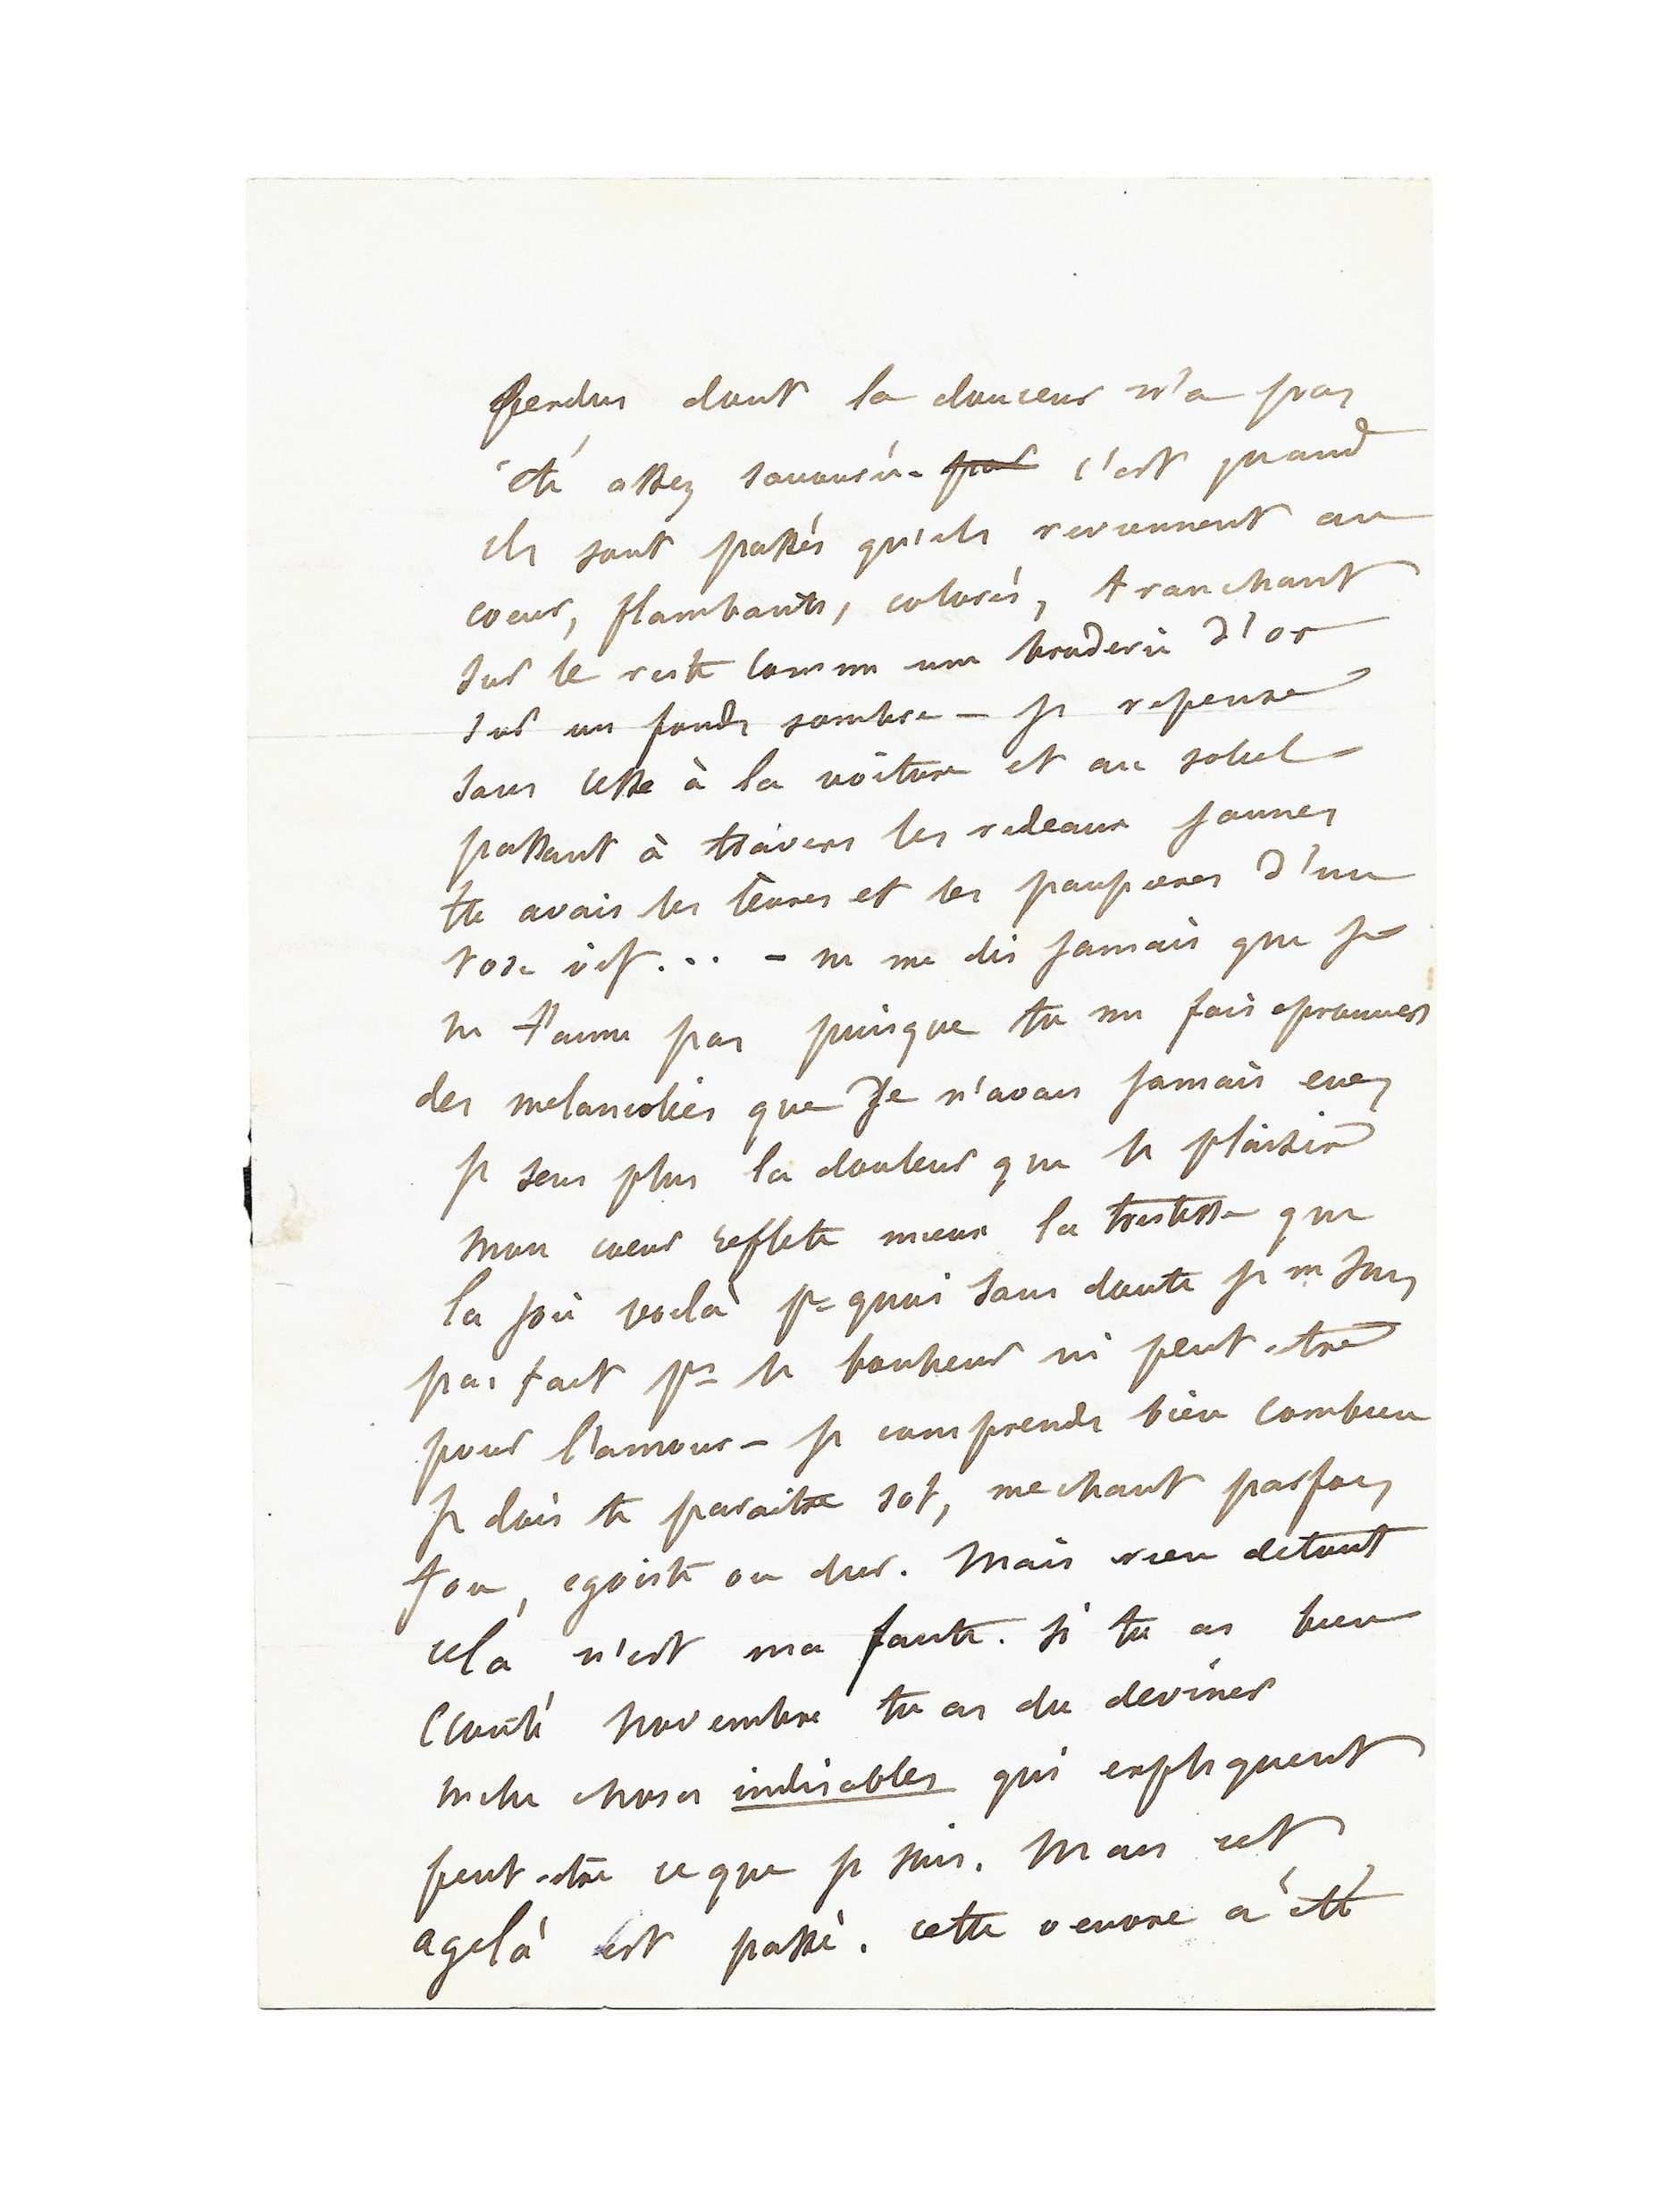 perdus dont la douceur n'a pas
été assez savourée. par c'est quand
ils sont passés qu'ils reviennent au
coeur, flambants, colorés, tranchant
sur le reste comme une broderie d'or
sur un fonds sombre — je repense
sans cesse à la voiture et au soleil
passant à travers les rideaux jaunes
tu avais les levres et les paupieres d'un
rose vif... — ne me dis jamais que je
ne t'aime pas puisque tu me fais eprouver
des melancolies que je n'avais jamais eues
je sens plus la douleur que le plaisir
mon coeur reflete mieux la tristesse que
la joie voilà pr quoi sans doute je ne suis
pas fait pr le bonheur ni peut-etre
pour l'amour — je comprends bien combien
je dois te paraitre sot, mechant parfois
fou, egoiste ou dur. Mais rien de tout
cela n'est ma faute. si tu as bien
écouté Novembre tu as du deviner
mille choses indisables qui expliquent
peut-etre ce que je suis. Mais cet
age là est passé. cette oeuvre a été